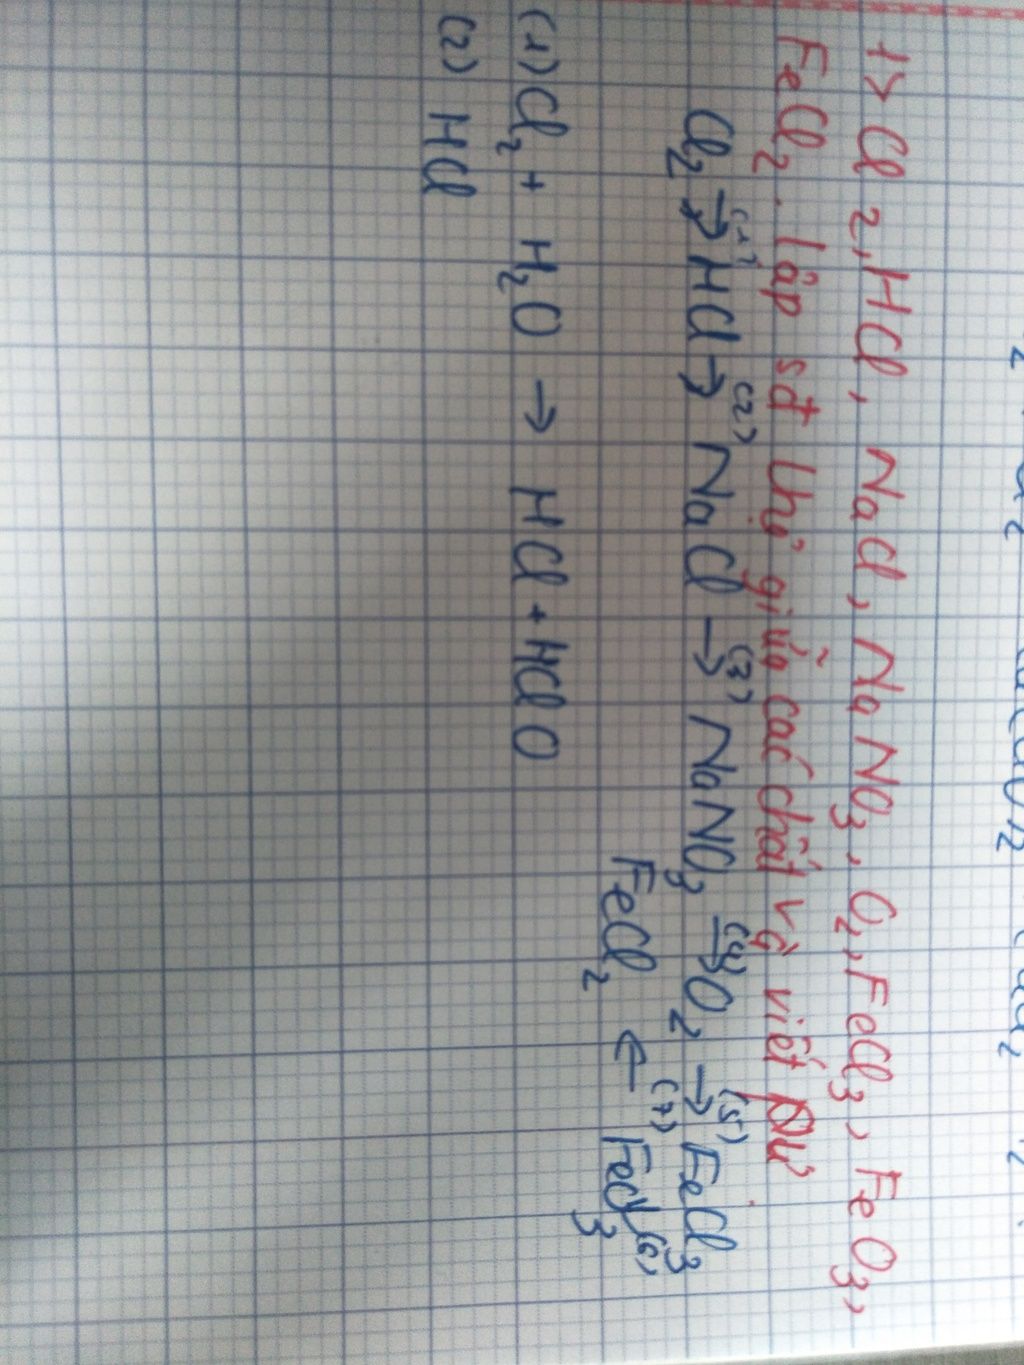 1> Cl2, HCl, NaCl, NaNO3, O2, FeCl3, FeO3,
FeCl2. lập sđ thị giữa các chất và viết pư
Cl2 →(1) HCl →(2) NaCl →(3) NaNO3 →(4) O2 →(5) FeCl3
FeCl2 ←(7) FeCl3 (6)
(1) Cl2 + H2O → HCl + HClO
(2) HCl